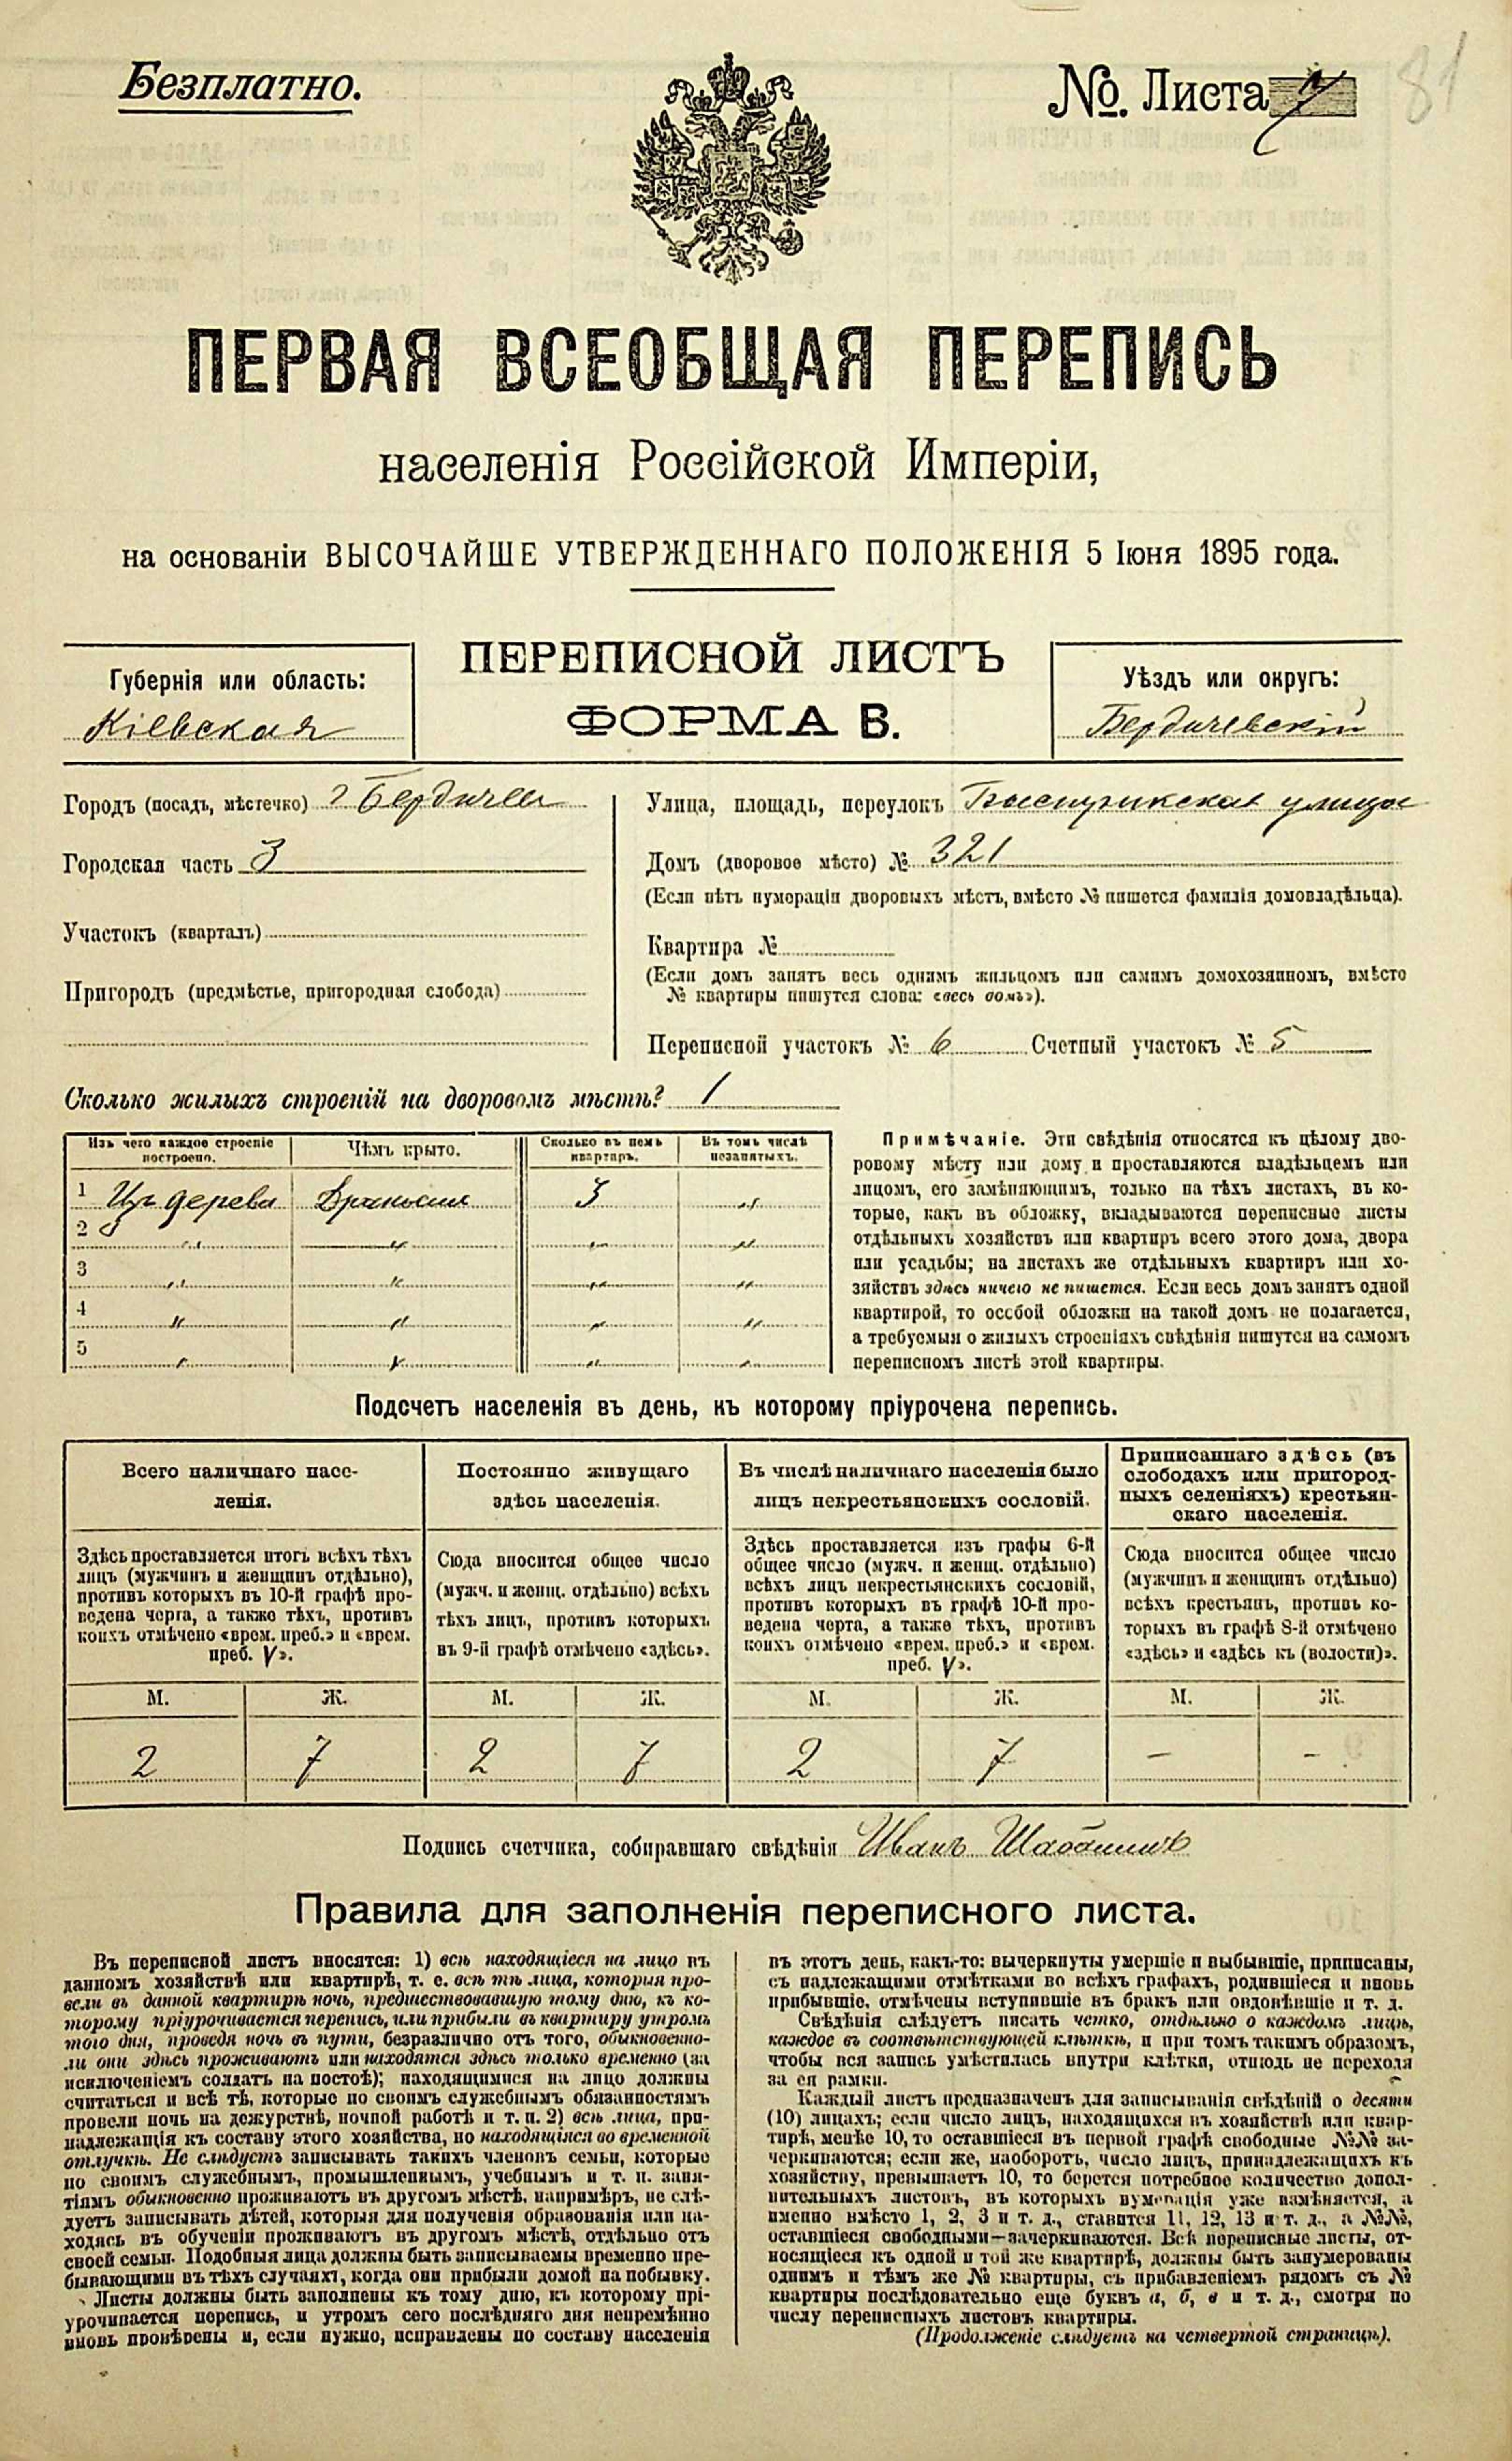 Безплатно.
№. Листа 7
81
ПЕРВАЯ ВСЕОБЩАЯ ПЕРЕПИСЬ
населенія Россійской Имперіи,
на основаніи ВЫСОЧАЙШЕ УТВЕРЖДЕННАГО ПОЛОЖЕНІЯ 5 Іюня 1895 года.
Губернія или область:
Кіевская
ПЕРЕПИСНОЙ ЛИСТЪ
ФОРМА В.
Уѣздъ или округъ:
Бердичевскій
Городъ (посадъ, мѣстечко) г Бердичев
Городская часть 3
Участокъ (кварталъ)
Пригородъ (предмѣстье, пригородная слобода)
Улица, площадь, переулокъ Быстрикская улица
Домъ (дворовое мѣсто) № 321
(Если нѣтъ нумераціи дворовыхъ мѣстъ, вмѣсто № пишется фамилія домовладѣльца).
Квартира №
(Если домъ занятъ весь однимъ жильцомъ или самимъ домохозяиномъ, вмѣсто
№ квартиры пишутся слова: «весь домъ»).
Переписной участокъ № 6 Счетный участокъ № 5
Сколько жилыхъ строеній на дворовомъ мѣстѣ? 1
Изъ чего каждое строеніе построено. Чѣмъ крыто. Сколько въ немъ квартиръ. Въ томъ числѣ незанятыхъ.
1 Изъ дерева Драньями 3 "
2 " " " "
3 " " " "
4 " " " "
5 " " " "
Примѣчаніе. Эти свѣдѣнія относятся къ цѣлому дво-
ровому мѣсту или дому и проставляются владѣльцемъ или
лицомъ, его замѣняющимъ, только на тѣхъ листахъ, въ ко-
торые, какъ въ обложку, вкладываются переписные листы
отдѣльныхъ хозяйствъ или квартиръ всего этого дома, двора
или усадьбы; на листахъ же отдѣльныхъ квартиръ или хо-
зяйствъ здѣсь ничего не пишется. Если весь домъ занятъ одной
квартирой, то особой обложки на такой домъ не полагается,
а требуемыя о жилыхъ строеніяхъ свѣдѣнія пишутся на самомъ
переписномъ листѣ этой квартиры.
Подсчетъ населенія въ день, къ которому пріурочена перепись.
Всего наличнаго насе-
ленія.
Здѣсь проставляется итогъ всѣхъ тѣхъ
лицъ (мужчинъ и женщинъ отдѣльно),
противъ которыхъ въ 10-й графѣ про-
ведена черта, а также тѣхъ, противъ
коихъ отмѣчено «врем. преб.» и «врем.
преб. V».
М. Ж.
2 7
Постоянно живущаго
здѣсь населенія.
Сюда вносится общее число
(мужч. и женщ. отдѣльно) всѣхъ
тѣхъ лицъ, противъ которыхъ
въ 9-й графѣ отмѣчено «здѣсь».
М. Ж.
2 7
Въ числѣ наличнаго населенія было
лицъ некрестьянскихъ сословій.
Здѣсь проставляется изъ графы 6-й
общее число (мужч. и женщ. отдѣльно)
всѣхъ лицъ некрестьянскихъ сословій,
противъ которыхъ въ графѣ 10-й про-
ведена черта, а также тѣхъ, противъ
коихъ отмѣчено «врем. преб.» и «врем.
преб. V».
М. Ж.
2 7
Приписаннаго здѣсь (въ
слободахъ или пригород-
ныхъ селеніяхъ) крестьян-
скаго населенія.
Сюда вносится общее число
(мужчинъ и женщинъ отдѣльно)
всѣхъ крестьянъ, противъ ко-
торыхъ въ графѣ 8-й отмѣчено
«здѣсь» и «здѣсь къ (волости)».
М. Ж.
– –
Подпись счетчика, собиравшаго свѣдѣнія Иванъ
Правила для заполненія переписного листа.
Въ переписной листъ вносятся: 1) всѣ находящіеся на лицо въ
данномъ хозяйствѣ или квартирѣ, т. е. всѣ тѣ лица, которыя про-
вели въ данной квартирѣ ночь, предшествовавшую тому дню, къ ко-
торому пріурочивается перепись, или прибыли въ квартиру утромъ
того дня, проведя ночь въ пути, безразлично отъ того, обыкновенно-
ли они здѣсь проживаютъ или находятся здѣсь только временно (за
исключеніемъ солдатъ на постоѣ); находящимися на лицо должны
считаться и всѣ тѣ, которые по своимъ служебнымъ обязанностямъ
провели ночь на дежурствѣ, ночной работѣ и т. п. 2) всѣ лица, при-
надлежащія къ составу этого хозяйства, но находящіяся во временной
отлучкѣ. Не слѣдуетъ записывать такихъ членовъ семьи, которые
по своимъ служебнымъ, промышленнымъ, учебнымъ и т. п. заня-
тіямъ обыкновенно проживаютъ въ другомъ мѣстѣ, напримѣръ, не слѣ-
дуетъ записывать дѣтей, которыя для полученія образованія или на-
ходясь въ обученіи проживаютъ въ другомъ мѣстѣ, отдѣльно отъ
своей семьи. Подобныя лица должны быть записываемы временно пре-
бывающими въ тѣхъ случаяхъ, когда они прибыли домой на побывку.
Листы должны быть заполнены къ тому дню, къ которому прі-
урочивается перепись, и утромъ сего послѣдняго дня непремѣнно
вновь провѣрены и, если нужно, исправлены по составу населенія
въ этотъ день, какъ-то: вычеркнуты умершіе и выбывшіе, приписаны,
съ надлежащими отмѣтками во всѣхъ графахъ, родившіеся и вновь
прибывшіе, отмѣчены вступившіе въ бракъ или овдовѣвшіе и т. д.
Свѣдѣнія слѣдуетъ писать четко, отдѣльно о каждомъ лицѣ,
каждое въ соотвѣтствующей клѣткѣ, и при томъ такимъ образомъ,
чтобы вся запись умѣстилась внутри клѣтки, отнюдь не переходя
за ея рамки.
Каждый листъ предназначенъ для записыванія свѣдѣній о десяти
(10) лицахъ; если число лицъ, находящихся въ хозяйствѣ или квар-
тирѣ, менѣе 10, то оставшіеся въ первой графѣ свободные №№ за-
черкиваются; если же, наоборотъ, число лицъ, принадлежащихъ къ
хозяйству, превышаетъ 10, то берется потребное количество допол-
нительныхъ листовъ, въ которыхъ нумерація уже измѣняется, а
именно вмѣсто 1, 2, 3 и т. д., ставится 11, 12, 13 и т. д., а №№,
оставшіеся свободными—зачеркиваются. Всѣ переписные листы, от-
носящіеся къ одной и той же квартирѣ, должны быть занумерованы
однимъ и тѣмъ же № квартиры, съ прибавленіемъ рядомъ съ №
квартиры послѣдовательно еще буквъ а, б, в и т. д., смотря по
числу переписныхъ листовъ квартиры.
(Продолженіе слѣдуетъ на четвертой страницѣ).